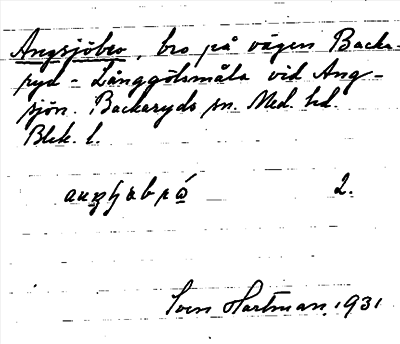 Angsjöbro, bro på vägen Backa-
ryd - Långgölsmåla vid Ang-
sjön. Backaryds sn. Med. hd.
Blek. l.
2.
Sven Hartman 1931